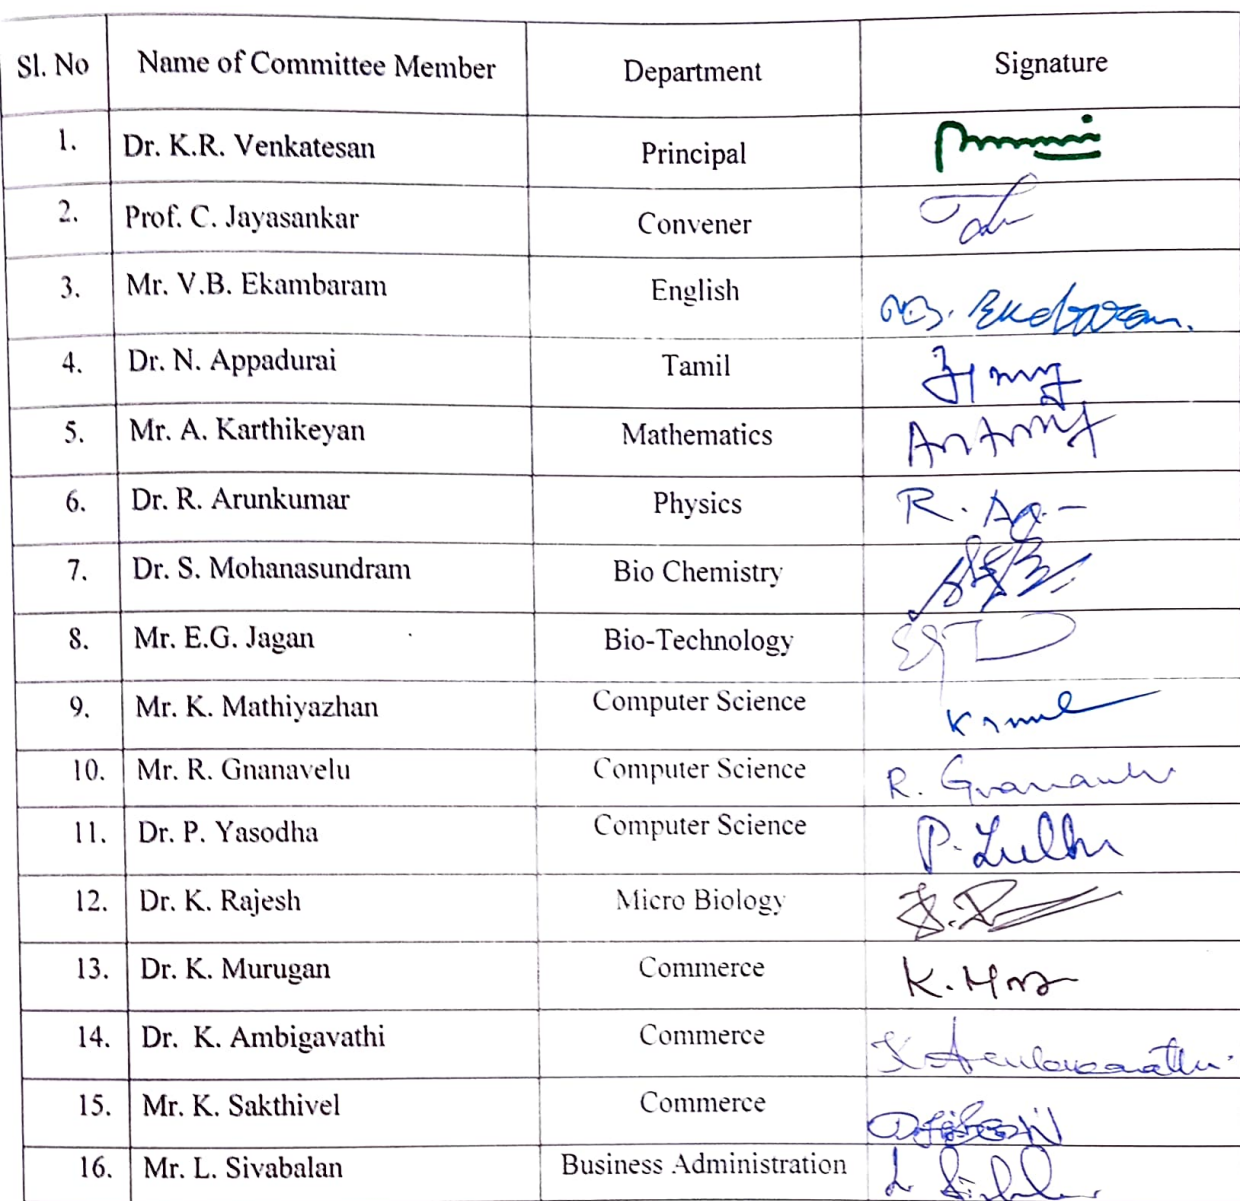 Sl. No Name of Committee Member Department Signature
1. Dr. K.R. Venkatesan Principal
2. Prof. C. Jayasankar Convener
3. Mr. V.B. Ekambaram English
4. Dr. N. Appadurai Tamil
5. Mr. A. Karthikeyan Mathematics
6. Dr. R. Arunkumar Physics R.
7. Dr. S. Mohanasundram Bio Chemistry
8. Mr. E.G. Jagan Bio-Technology
9. Mr. K. Mathiyazhan Computer Science
10. Mr. R. Gnanavelu Computer Science R.
11. Dr. P. Yasodha Computer Science P.
12. Dr. K. Rajesh Micro Biology
13. Dr. K. Murugan Commerce K.
14. Dr. K. Ambigavathi Commerce
15. Mr. K. Sakthivel Commerce
16. Mr. L. Sivabalan Business Administration